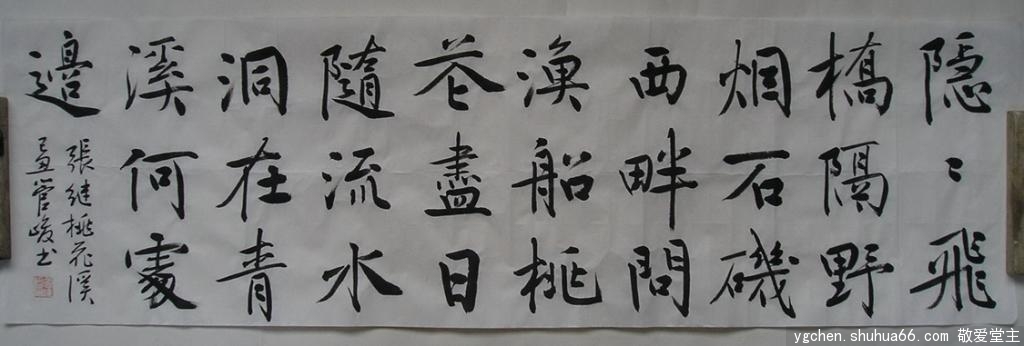 隱〻飛
橋隔野
烟石磯
西畔問
漁船桃
花盡日
隨流水
洞在青
溪何處
邊
張継桃花溪
孟管峻书
ygchen.shuhua66.com 敬爱堂主